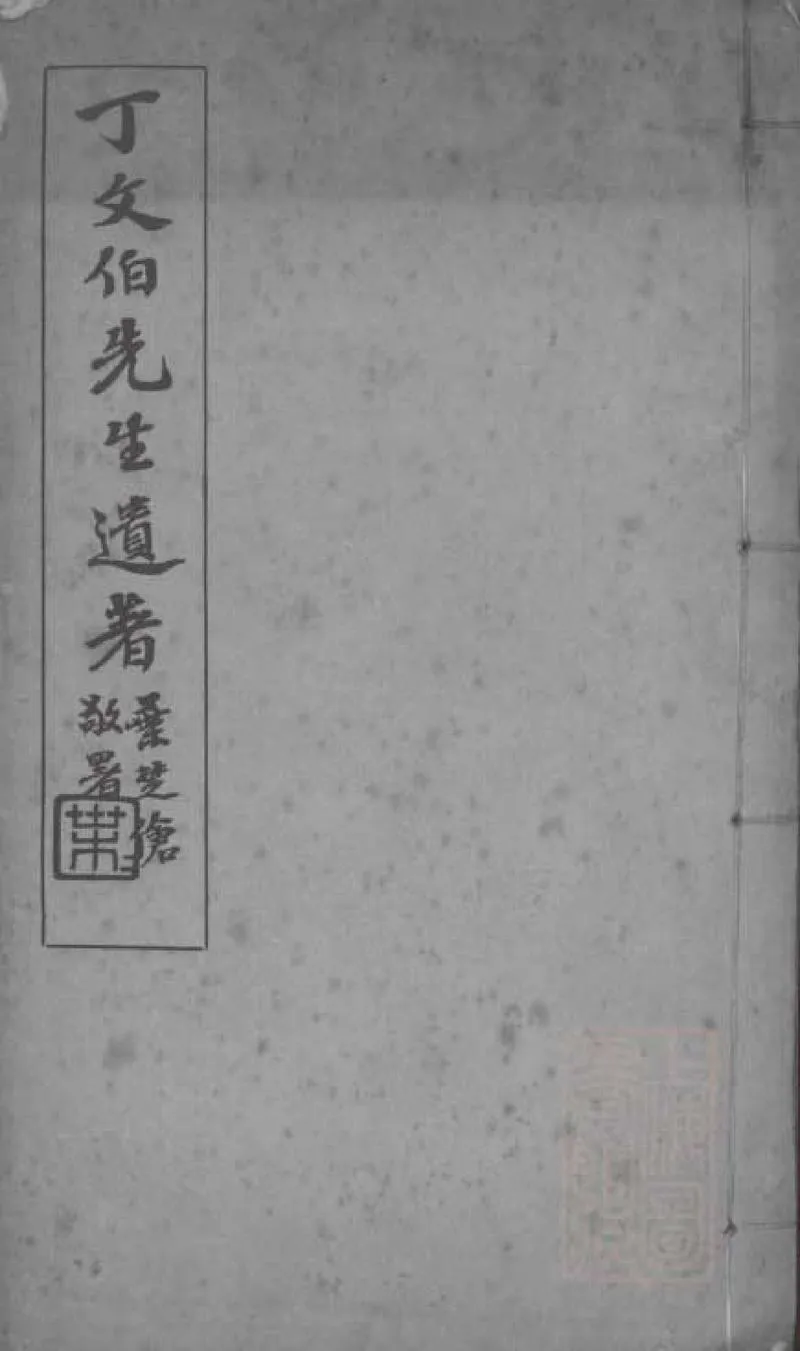 丁文伯先生遺著
葉芝傖
敬署
葉